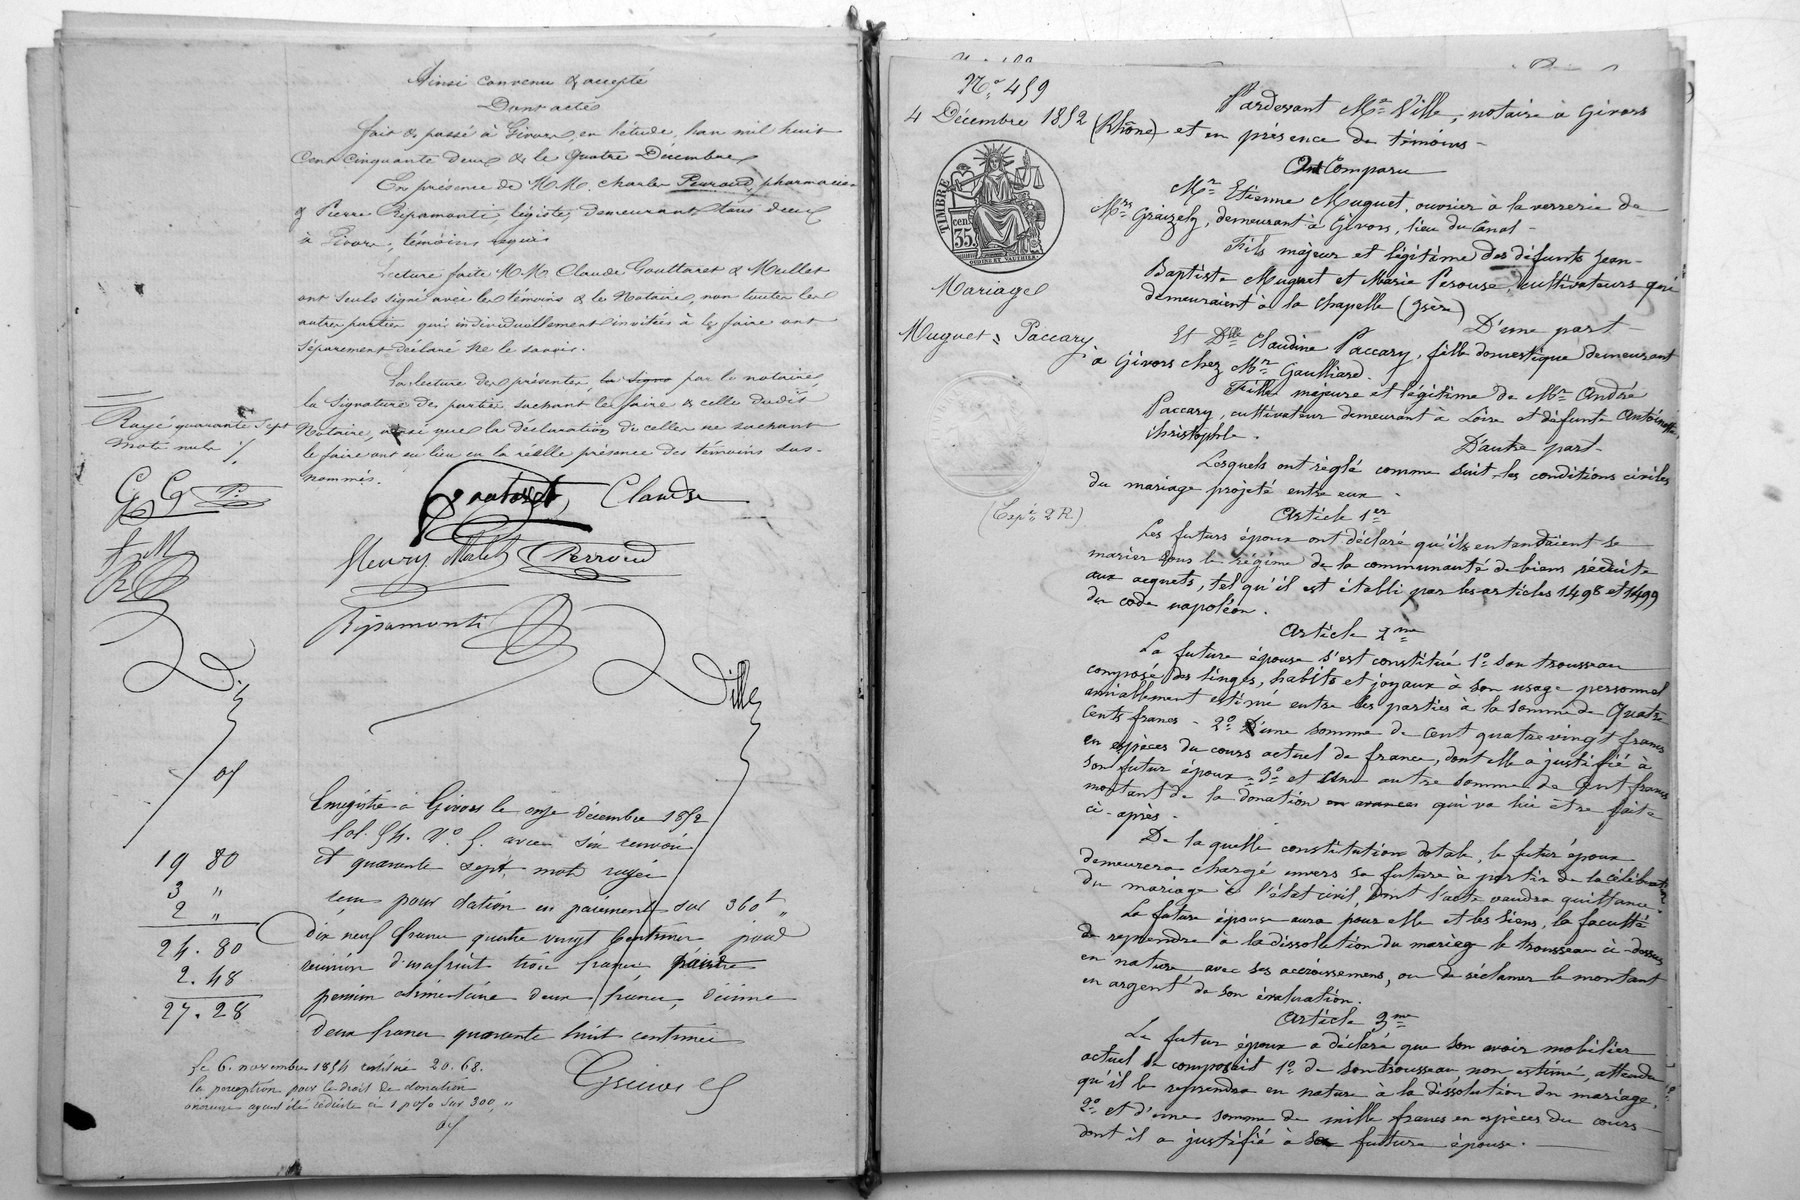 Ainsi convenu & accepté
Dont acte
Fait & passé à Givors, en l'étude, l'an mil huit
cent cinquante deux & le quatre Décembre
En présence de M.M. Charles Perraud, pharmacien
& Pierre Ripamonti, légiste, demeurant tous deux
à Givors, témoins requis
Lecture faite M.M. Claude Gouttaret & Mallet
ont seuls signé avec les témoins & le Notaire, non toutes les
autres parties qui individuellement invitées à le faire ont
séparément déclaré ne le savoir.
La lecture des présentes, la signa par le notaire,
la signature des parties sachant le faire & celle dudit
Notaire, ainsi que la déclaration de celles ne sachant
le faire ont eu lieu en la réelle présence des témoins sus-
nommés.
Rayé quarante sept
mots nuls
Claude
Fleury Malet Perroud
Ripamonti
Ville
Enregistré à Givors le onze décembre 1852
fol. 54. V° 5. avec six renvois
et quarante sept mots rayés
reçu pour dation en paiement sur 360f
dix neuf francs quatre vingt centimes pour
réunion d'usufruit trois francs,
pension alimentaire deux francs, décime
deux francs quarante huit centimes
19 80
3 "
2 "
24. 80
2. 48
27. 28
Le 6. novembre 1854 restitué 20.68.
la perception pour le droit de donation
onéreuse ayant été réduite à 1 p% sur 300, "
N° 459
4 Décembre 1852
TIMBRE
cen.
35.
OUDINÉ ET VAUTHIER
Mariage
Muguet & Paccary
(Expé. 2 R.)
Pardevant Me Ville, notaire à Givors
(Rhône) et en présence de témoins -
Ont Comparu
Mr Etienne Muguet, ouvrier à la verrerie de
Mrs Graizely, demeurant à Givors, lieu du Canal -
Fils majeur et légitime des défunts Jean-
Baptiste Muguet et Marie Perouse, cultivateurs qui
demeuraient à la Chapelle (Isère)
D'une part -
Et Dlle Claudine Paccary, fille domestique demeurant
à Givors chez Mr Gaulliard.
Fille majeure et légitime de Mr André
Paccary, cultivateur demeurant à Loire et défunte Antoinette
Christophle.
D'autre part -
Lesquels ont règlé comme suit les conditions civiles
du mariage projeté entre eux.
Article 1er
Les futurs époux ont déclaré qu'ils entendaient se
marier sous le régime de la communauté de biens réduite
aux acquets, tel qu'il est établi par les articles 1498 et 1499
du code napoléon.
Article 2me
La future épouse s'est constitué 1° son trousseau
composé des linges, habits et joyaux à son usage personnel
amiablement estimé entre les parties à la somme de Quatre
Cents francs - 2° D'une somme de cent quatre vingt francs
en espèces du cours actuel de france, dont elle a justifié à
son futur époux. 3° et une autre somme de Cent francs
montant de la donation en avances qui va lui être faite
ci-après.
De laquelle constitution dotale, le futur époux
demeurera chargé envers sa future à partir de la célébration
du mariage à l'état civil, dont l'acte vaudra quittance.
La future épouse aura pour elle et les siens, la faculté
de reprendre à la dissolution du mariage le trousseau ci-dessus
en nature avec ses accroissemens, ou de réclamer le montant
en argent de son évaluation.
Article 3me
Le futur époux a déclaré que son avoir mobilier
actuel se composait 1° de son trousseau non estimé, attendu
qu'il le reprendra en nature à la dissolution du mariage.
2° et d'une somme de mille francs en espèces du cours
dont il a justifié à sa future épouse.